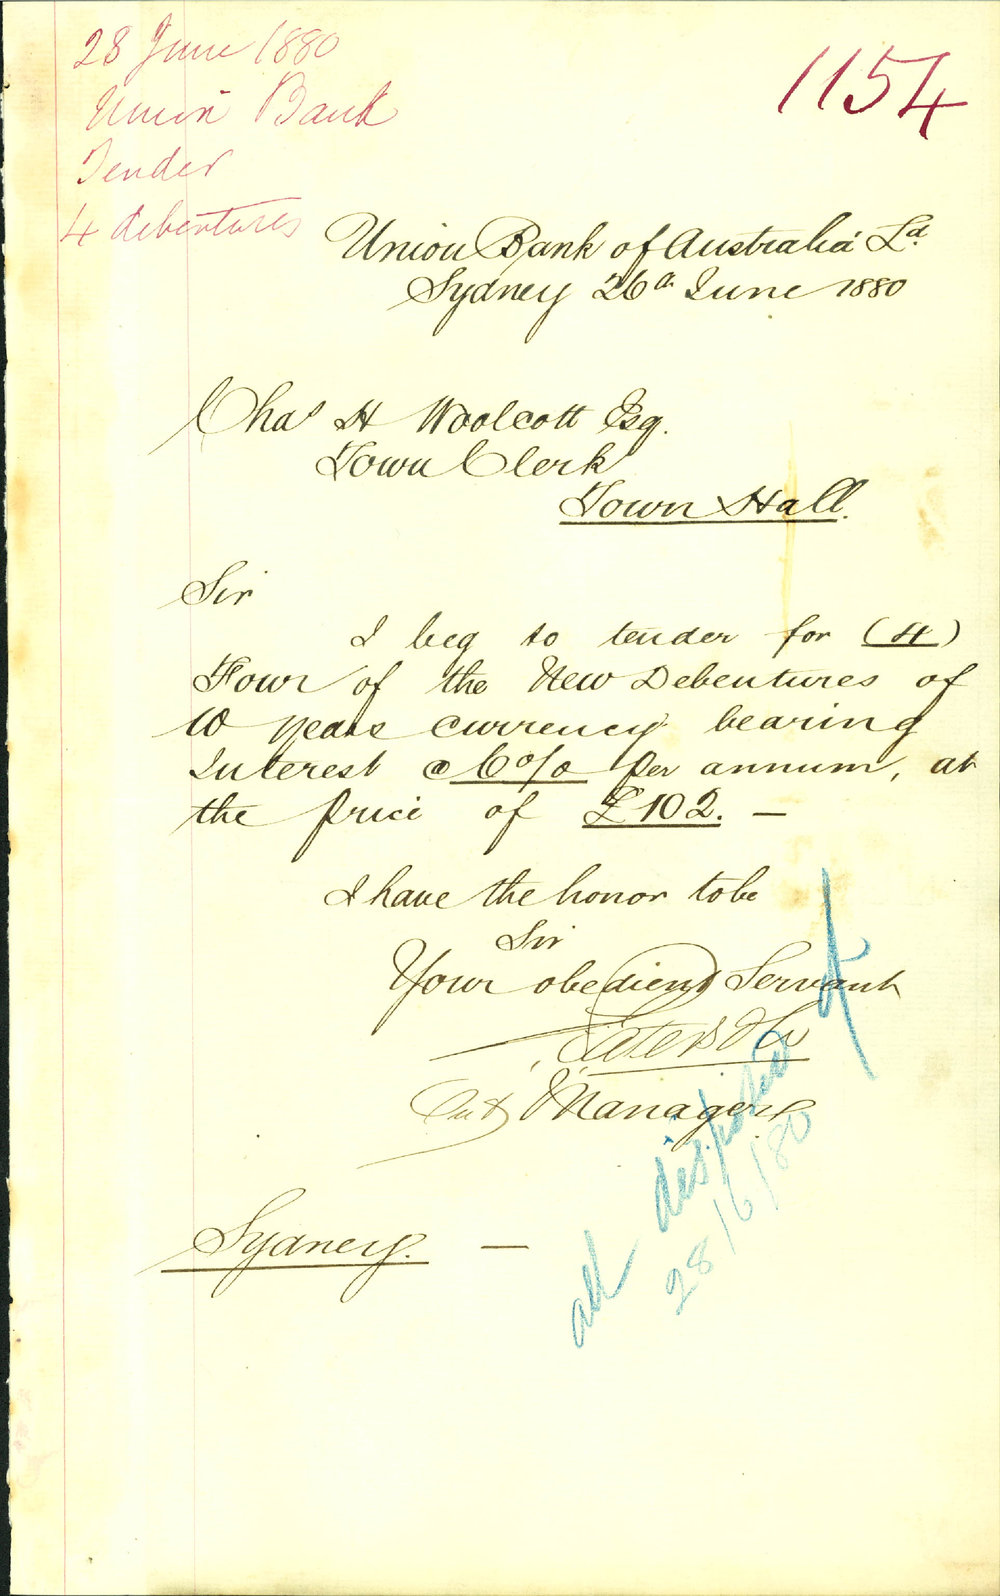 28 June 1880
Union Bank
Tender
4 debentures
1154
Union Bank of Australia Ld.
Sydney 26th June 1880
Chas H Woolcott Esq.
Town Clerk
Town Hall.
Sir
I beg to tender for (4)
Four of the New Debentures of
10 years currency bearing
Interest @ 6% per annum, at
the price of £102. —
I have the honor to be
Sir
Your obedient Servant
Manager
Sydney. —
all disposed of
28/6/80